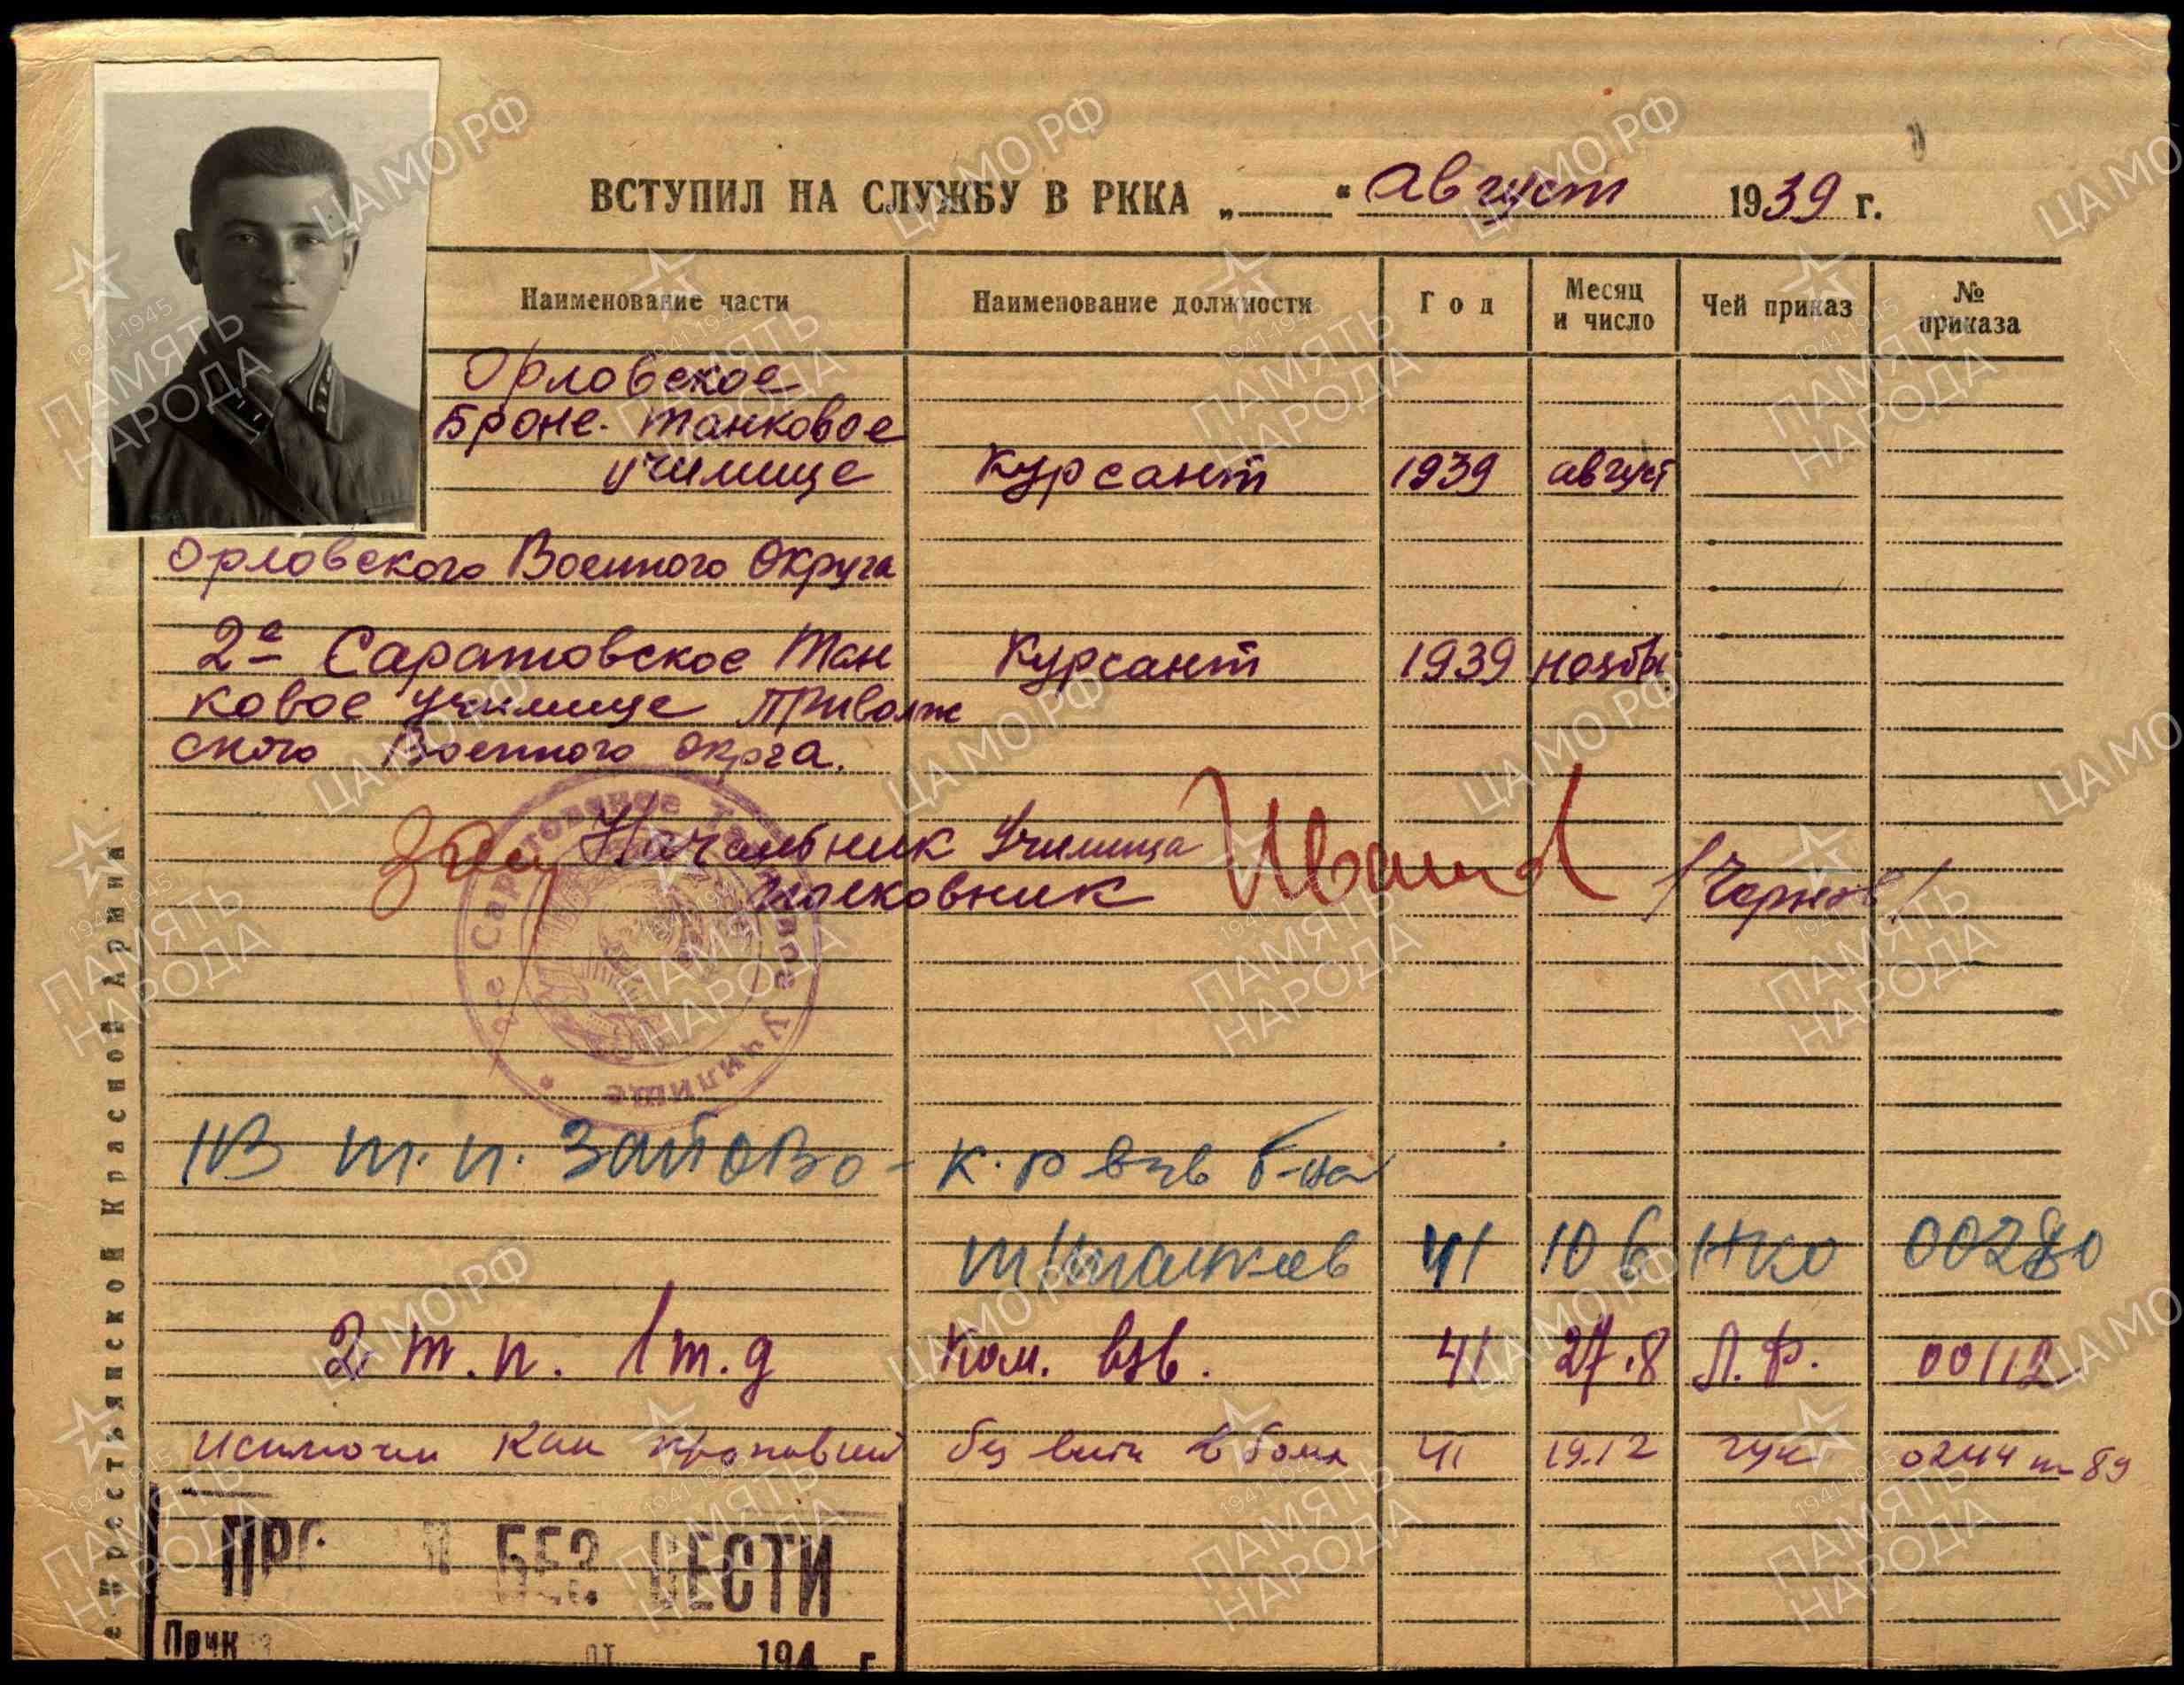 ВСТУПИЛ НА СЛУЖБУ В РККА „ “ август 1939 г.
Наименование части Наименование должности Год Месяц и число Чей приказ № приказа
Орловское
Броне-танковое
училище Курсант 1939 август
Орловского Военного Округа
2е Саратовское Тан Курсант 1939 ноябь
ковое училище Приволж
ского Военного окрга.
Зам Начальник Училища
полковник /Чернов/
2е Саратовское Танковое Училище
т.п. ЗапОВО - к-р взв б-на
т/танков 41 10 6 НКО 00280
2 т.п. 1 т.д Ком. взв. 41 27.8 Л.Ф. 00112
Исключен как пропавший без вести в боях 41 19.12 гук 0244
БЕЗ ВЕСТИ
Прик от 194 г
Крестьянской Красной Армии
ЦАМО.РФ
1941-1945
ПАМЯТЬ
НАРОДА